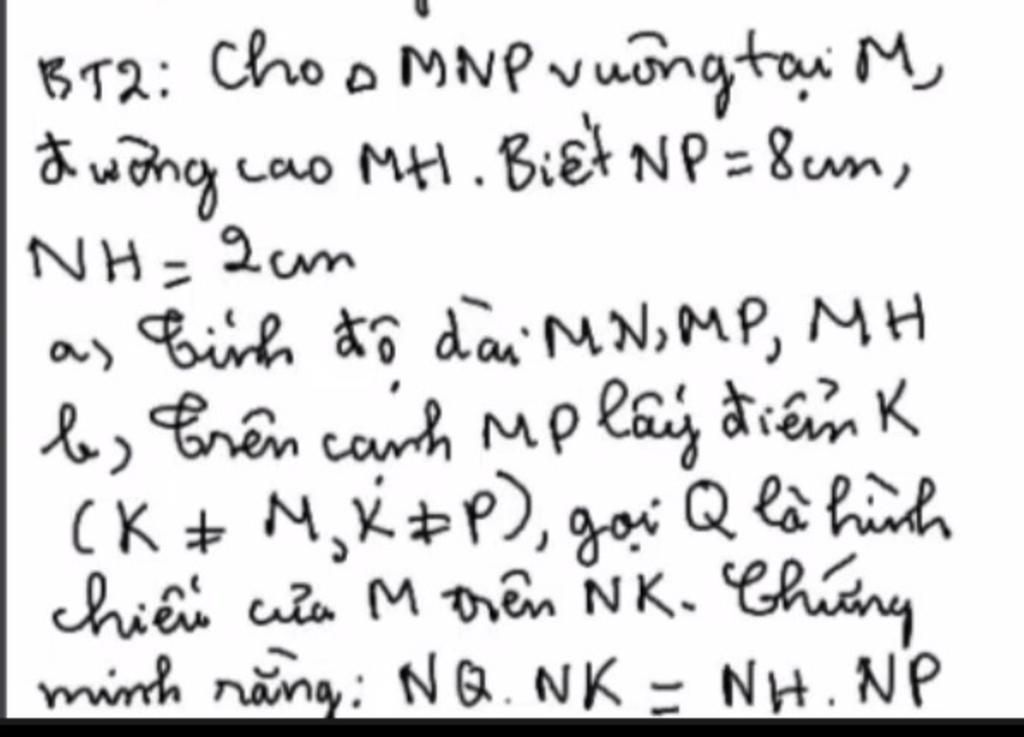 BT2: Cho △ MNP vuông tại M,
đường cao MH. Biết NP = 8cm,
NH = 2cm
a, Tính độ dài MN, MP, MH
b, Trên cạnh MP lấy điểm K
(K ≠ M, K ≠ P), gọi Q là hình
chiếu của M trên NK. Chứng
minh rằng: NQ. NK = NH. NP